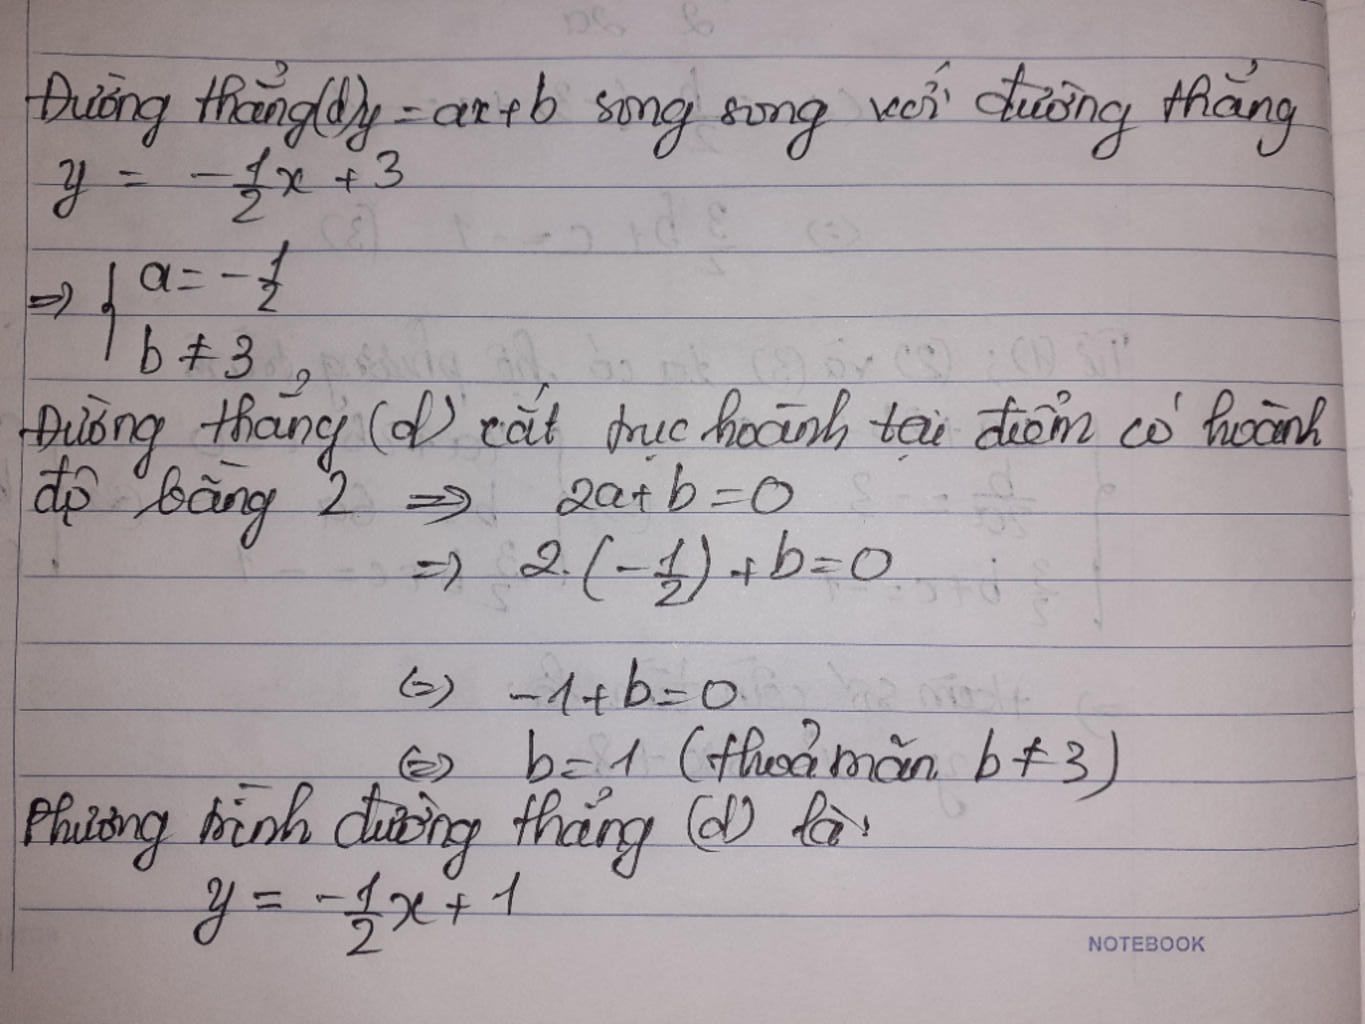 Đường thẳng (d) y = ax + b song song với đường thẳng
y = -1/2 x + 3
=> { a = -1/2
b ≠ 3
Đường thẳng (d) cắt trục hoành tại điểm có hoành
độ bằng 2 => 2a + b = 0
=> 2.(-1/2) + b = 0
<=> -1 + b = 0
<=> b = 1 (thoả mãn b ≠ 3)
Phương trình đường thẳng (d) là:
y = -1/2 x + 1
NOTEBOOK